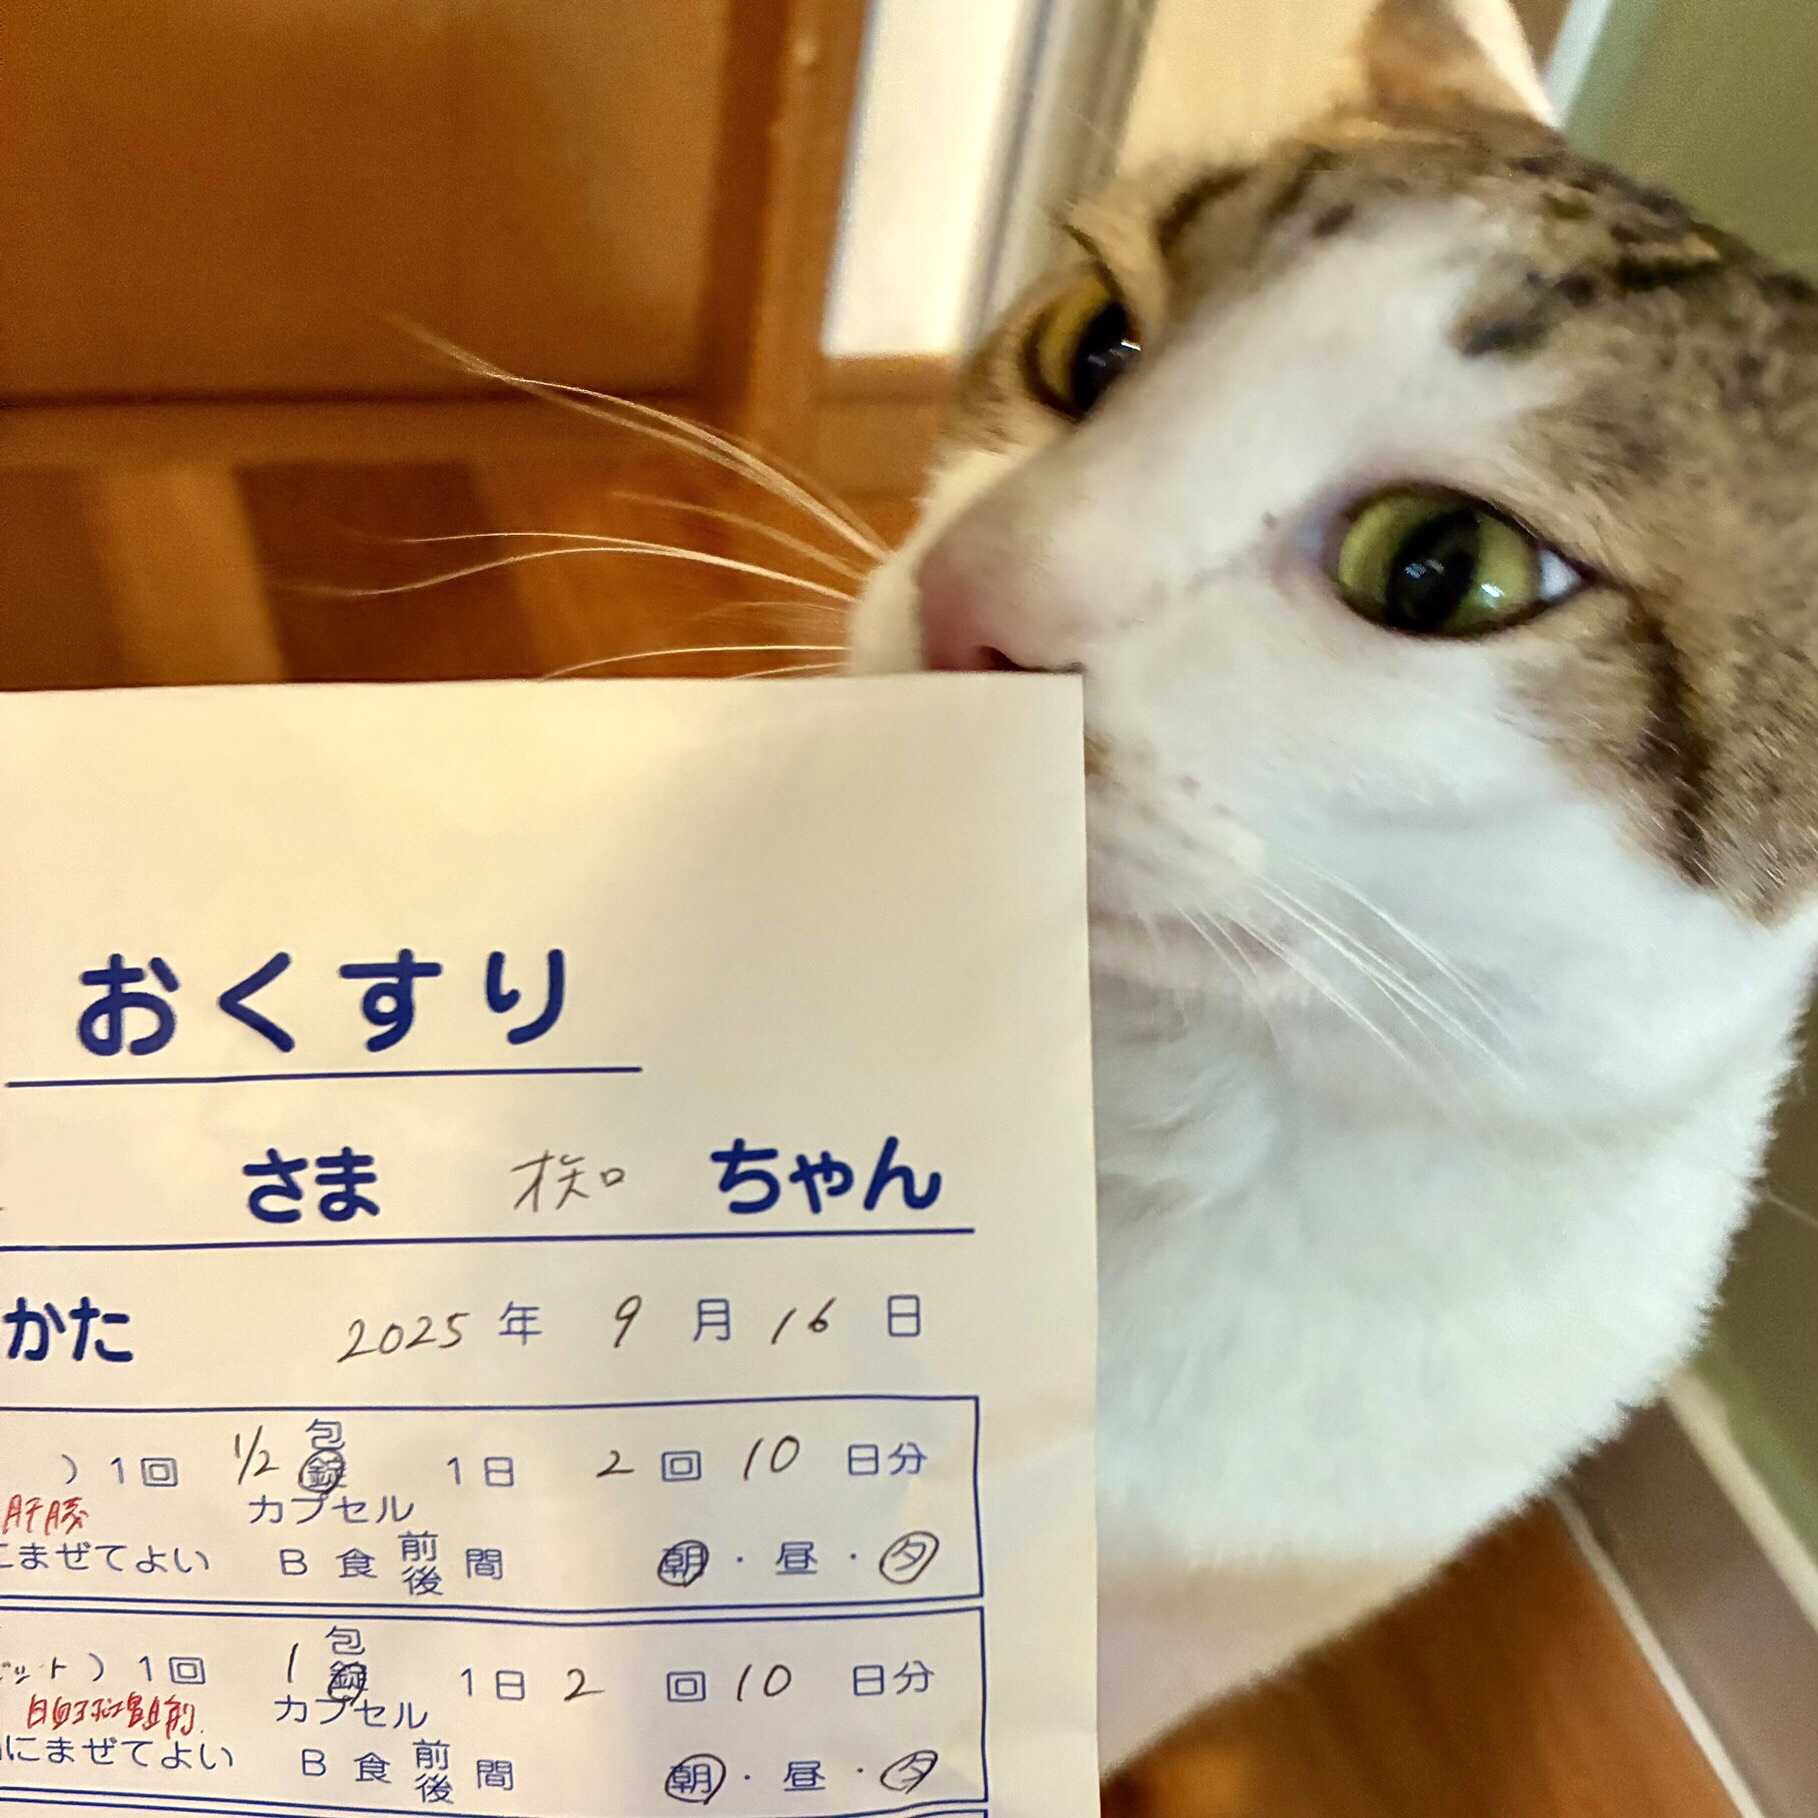 おくすり
さま 椥 ちゃん
かた 2025年 9月 16日
) 1回 1/2 包 錠 カプセル 1日 2回 10日分
肝臓
にまぜてよい B 食 前 後 間 朝・昼・夕
ット) 1回 1 包 錠 カプセル 1日 2回 10日分
白血球増前
にまぜてよい B 食 前 後 間 朝・昼・夕